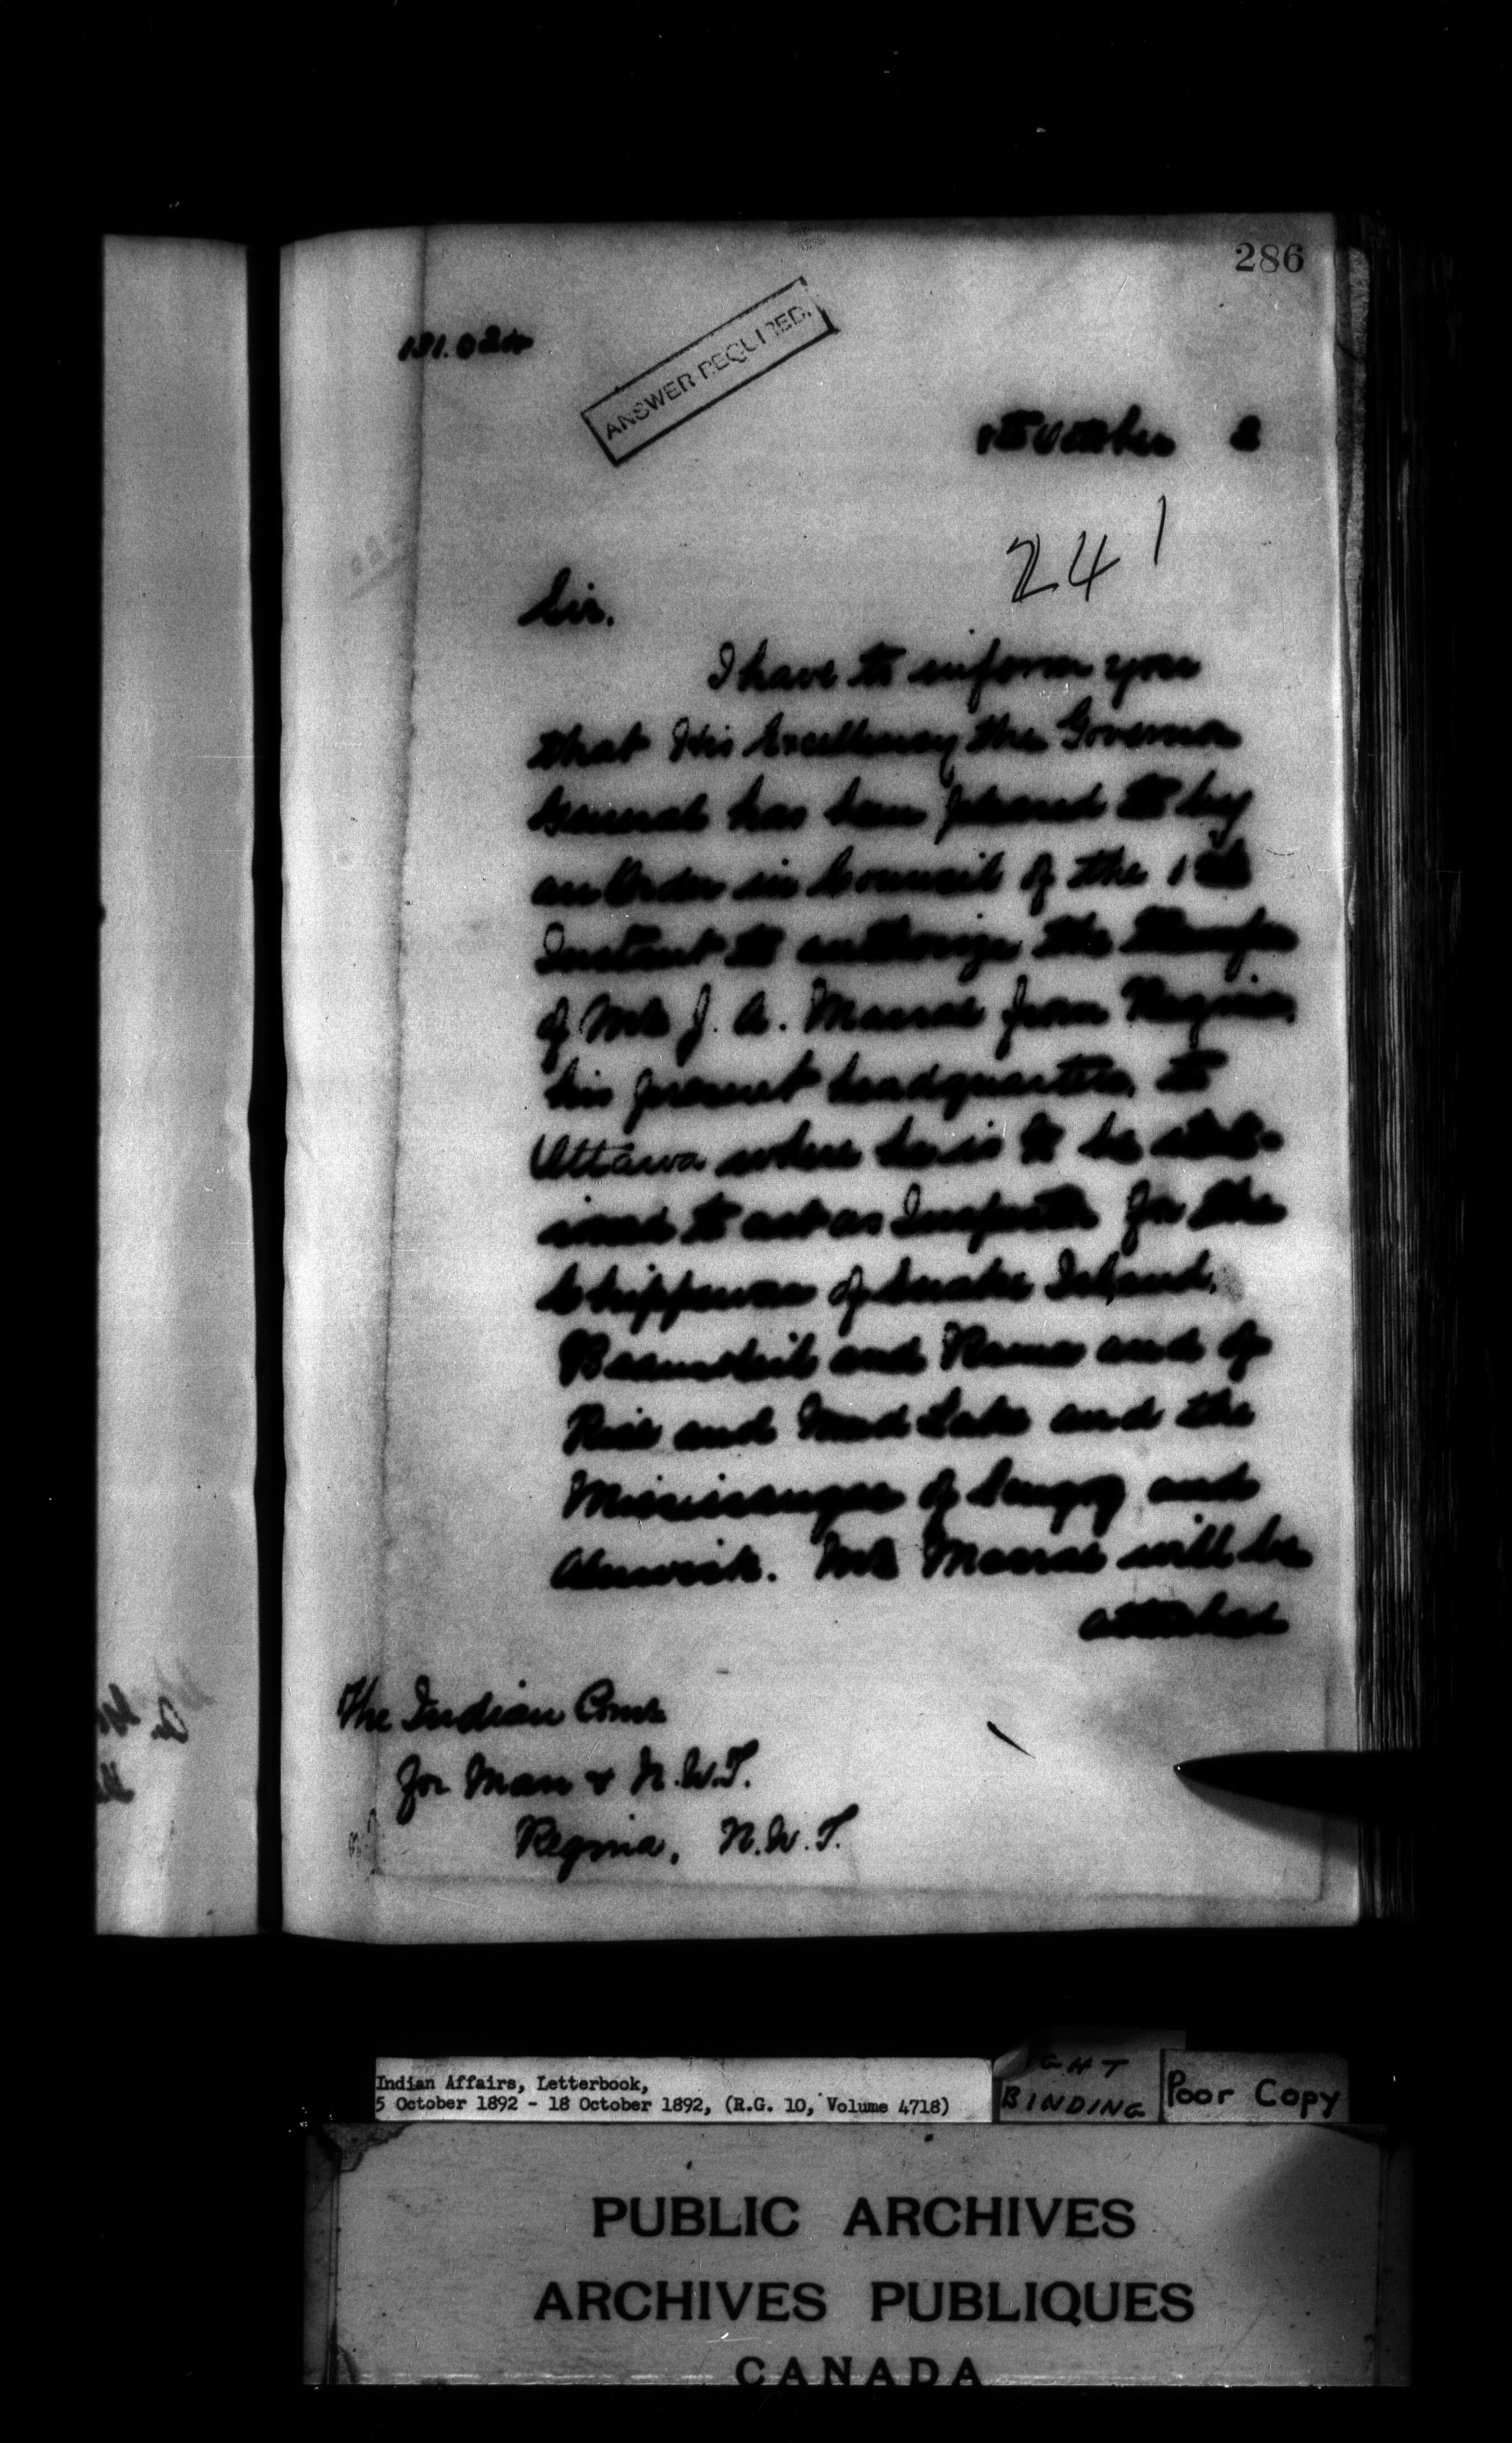 286
131.024
ANSWER REQUIRED.
October 2
241
Sir.
I have to inform you
that His Excellency the Governor
General has been pleased to by
an Order in Council of the 1st
Instant to authorize the transfer
of Mr J. A. Macrae from Regina,
his present headquarters, to
Ottawa where he is to be stat-
ioned to act as Inspector for the
Chippewas of Snake Island,
Beausoleil and Rama and of
Rice and Mud Lake and the
Mississaugas of Scugog and
Alnwick. Mr Macrae will be
attached
The Indian Comr
for Man & N.W.T.
Regina, N.W.T.
Indian Affairs, Letterbook,
5 October 1892 - 18 October 1892, (R.G. 10, Volume 4718)
BINDING
Poor Copy
PUBLIC ARCHIVES
ARCHIVES PUBLIQUES
CANADA